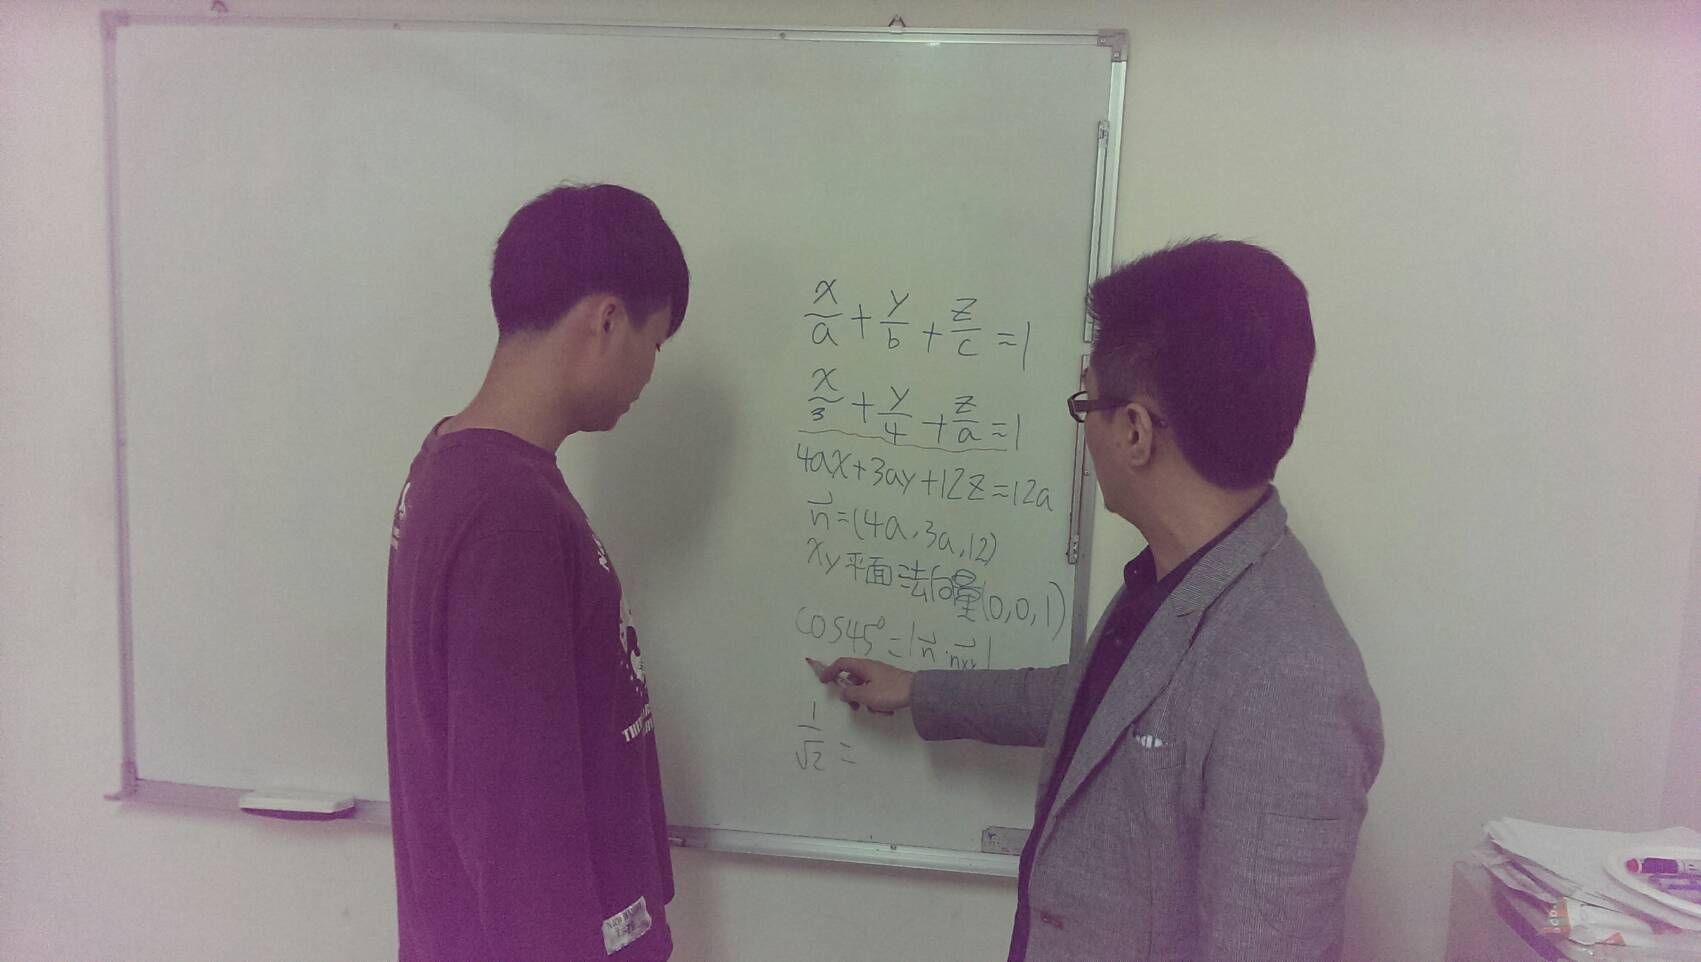 x/a + y/b + z/c = 1
x/3 + y/4 + z/a = 1
4ax+3ay+12z=12a
n⃗=(4a,3a,12)
xy平面法向量(0,0,1)
cos45°=|n⃗·n⃗xy|
1/√2 =